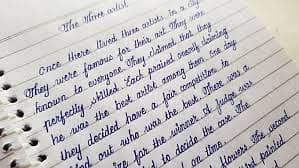 The Three artist
Once there lived three artists in a city
They were famous for their art. They were
known to everyone. They claimed that they
perfectly skilled. Each praised overly claiming
he was the best artist among them. One day
they decided have a fair competition to
find out who was the best. There was a
for the winner. A judge was
to decide the case. The
on time.
flowers. The second